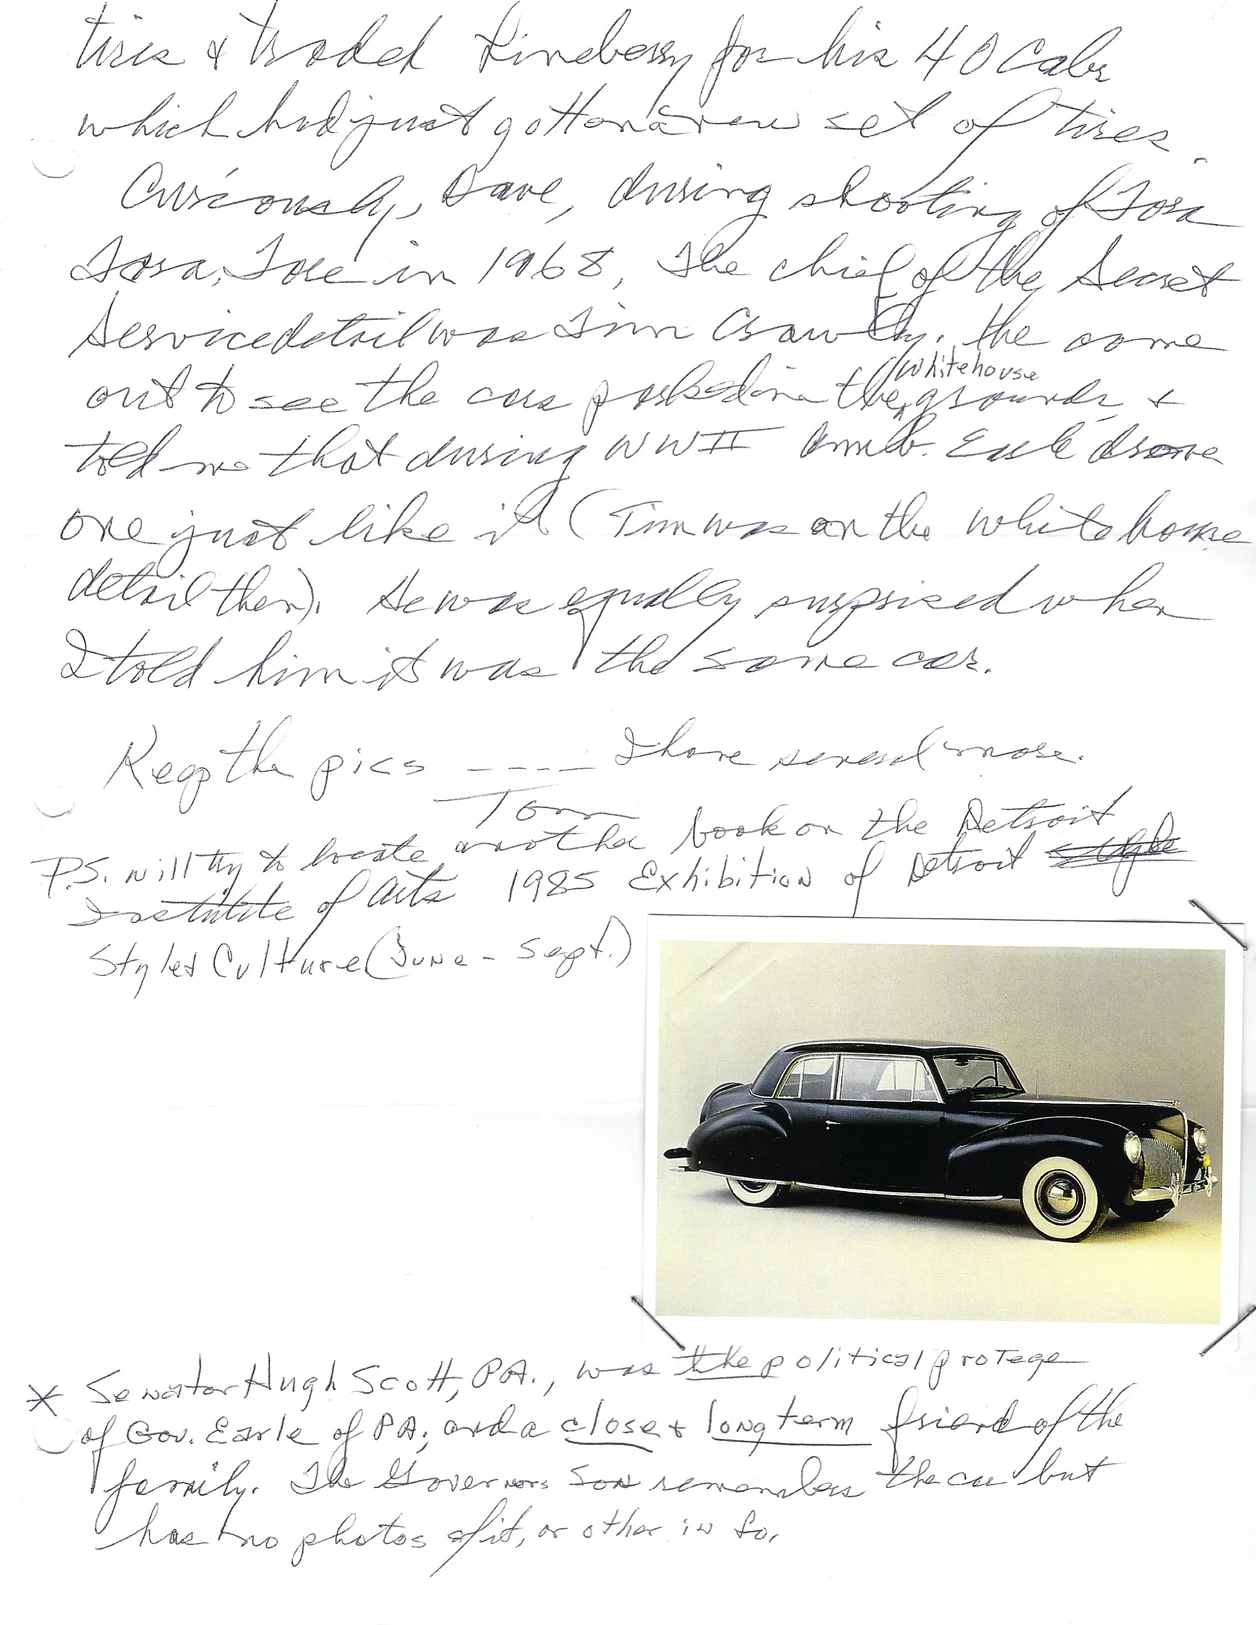 tires & traded Lineberry for his 40 Cabr
which had just gotten a new set of tires.
Curiously, Dave, during shooting of Tora
Tora, Tora in 1968, The chief of the Secret
Service detail was Tim Crawley. He came
out to see the car parked in the Whitehouse grounds &
told me that during WWII Amb. Earle drove
one just like it (Tim was on the White house
detail then). He was equally surprised when
I told him it was the same car.
Keep the pics ---- I have several more.
Tom
P.S. will try to locate another book on the Detroit
Institute of Arts 1985 Exhibition of Detroit
Styled Culture (June - Sept.)
* Senator Hugh Scott, PA., was the political protege
of Gov. Earle of PA; and a close & long term friend of the
family. The Governors son remembers the car but
has no photos of it, or other info.